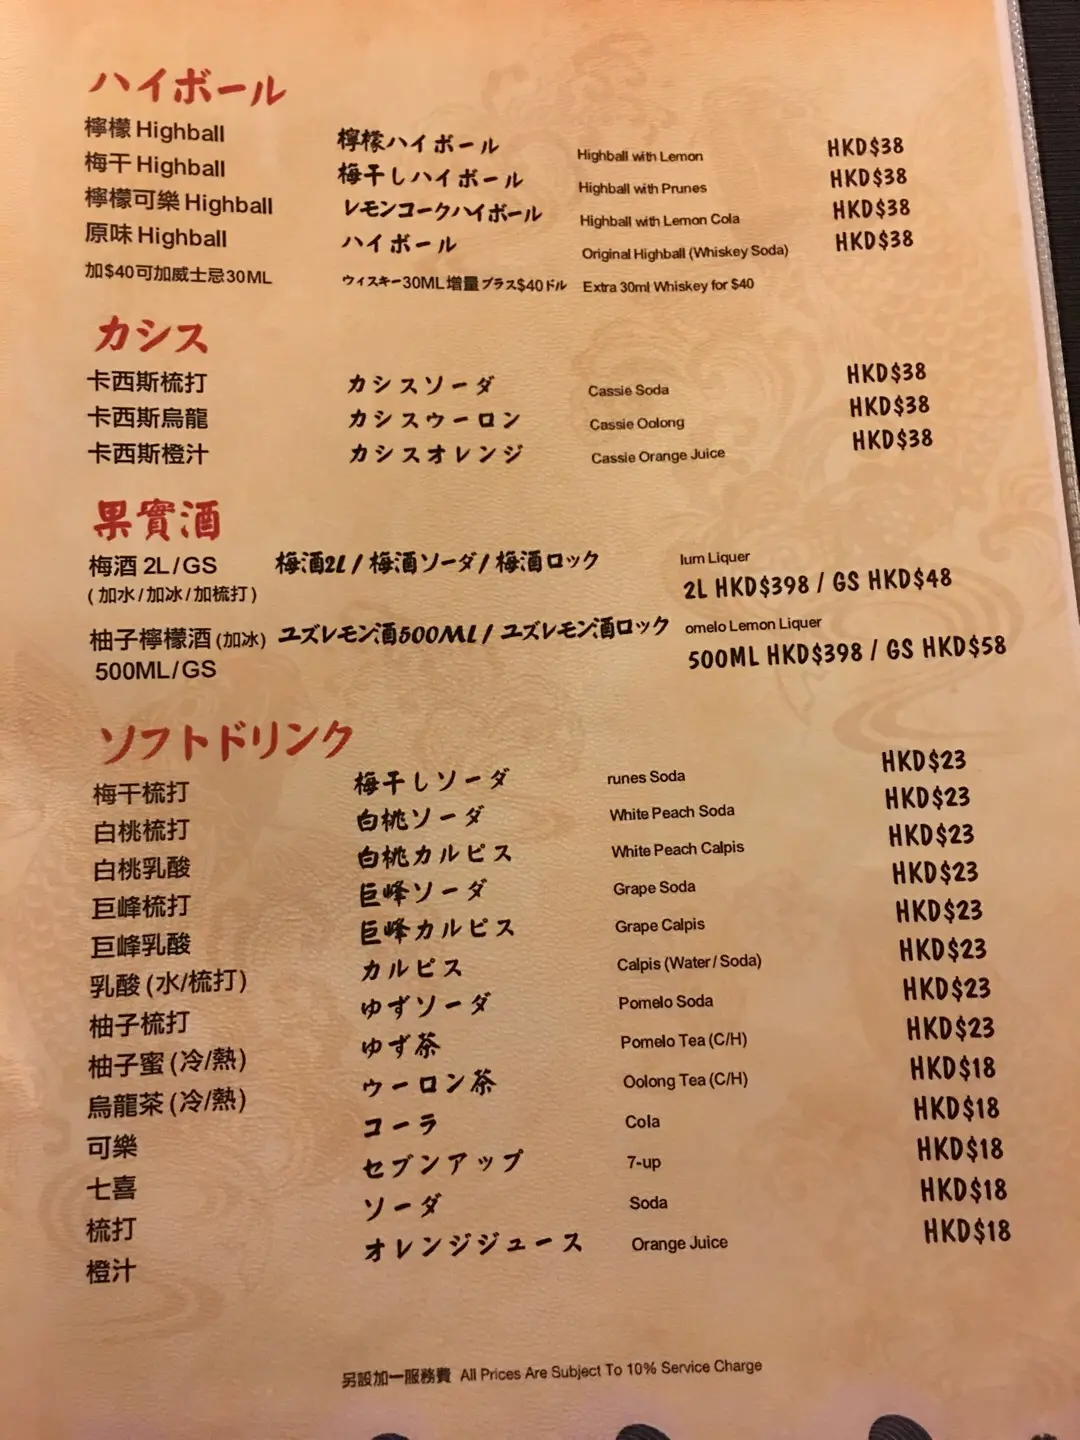 ハイボール
檸檬 Highball 檸檬ハイボール Highball with Lemon HKD$38
梅干 Highball 梅干しハイボール Highball with Prunes HKD$38
檸檬可樂 Highball レモンコークハイボール Highball with Lemon Cola HKD$38
原味 Highball ハイボール Original Highball (Whiskey Soda) HKD$38
加$40可加威士忌30ML ウィスキー30ML増量プラス$40ドル Extra 30ml Whiskey for $40
カシス
卡西斯梳打 カシスソーダ Cassie Soda HKD$38
卡西斯烏龍 カシスウーロン Cassie Oolong HKD$38
卡西斯橙汁 カシスオレンジ Cassie Orange Juice HKD$38
果實酒
梅酒 2L/GS 梅酒2L / 梅酒ソーダ / 梅酒ロック lum Liquer
(加水/加冰/加梳打) 2L HKD$398 / GS HKD$48
柚子檸檬酒 (加冰) ユズレモン酒500ML / ユズレモン酒ロック omelo Lemon Liquer
500ML/GS 500ML HKD$398 / GS HKD$58
ソフトドリンク
梅干梳打 梅干しソーダ runes Soda HKD$23
白桃梳打 白桃ソーダ White Peach Soda HKD$23
白桃乳酸 白桃カルピス White Peach Calpis HKD$23
巨峰梳打 巨峰ソーダ Grape Soda HKD$23
巨峰乳酸 巨峰カルピス Grape Calpis HKD$23
乳酸 (水/梳打) カルピス Calpis (Water / Soda) HKD$23
柚子梳打 ゆずソーダ Pomelo Soda HKD$23
柚子蜜 (冷/熱) ゆず茶 Pomelo Tea (C/H) HKD$23
烏龍茶 (冷/熱) ウーロン茶 Oolong Tea (C/H) HKD$18
可樂 コーラ Cola HKD$18
七喜 セブンアップ 7-up HKD$18
梳打 ソーダ Soda HKD$18
橙汁 オレンジジュース Orange Juice HKD$18
另設加一服務費 All Prices Are Subject To 10% Service Charge